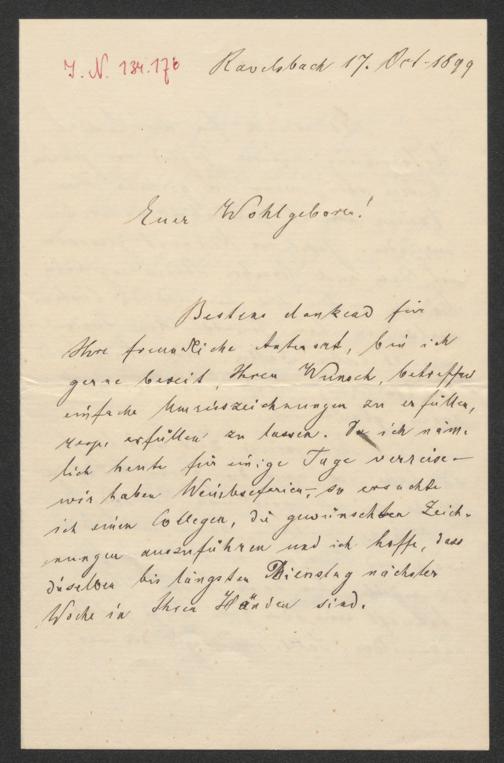 J. N. 134.176
Ravelsbach 17. Oct. 1899
Euer Wohlgeboren!
Bestens dankend für
Ihre freundliche Antwort, bin ich
gerne bereit, Ihren Wunsch, betreffend
einfache Umrisszeichnungen zu erfüllen,
resp. erfüllen zu lassen. Da ich näm-
lich heute für einige Tage verreise –
wir haben Weinleseferien –, so ersuchte
ich einen Collegen, die gewünschten Zeich-
nungen auszuführen und ich hoffe, dass
dieselben bis längsten Dienstag nächster
Woche in Ihren Händen sind.